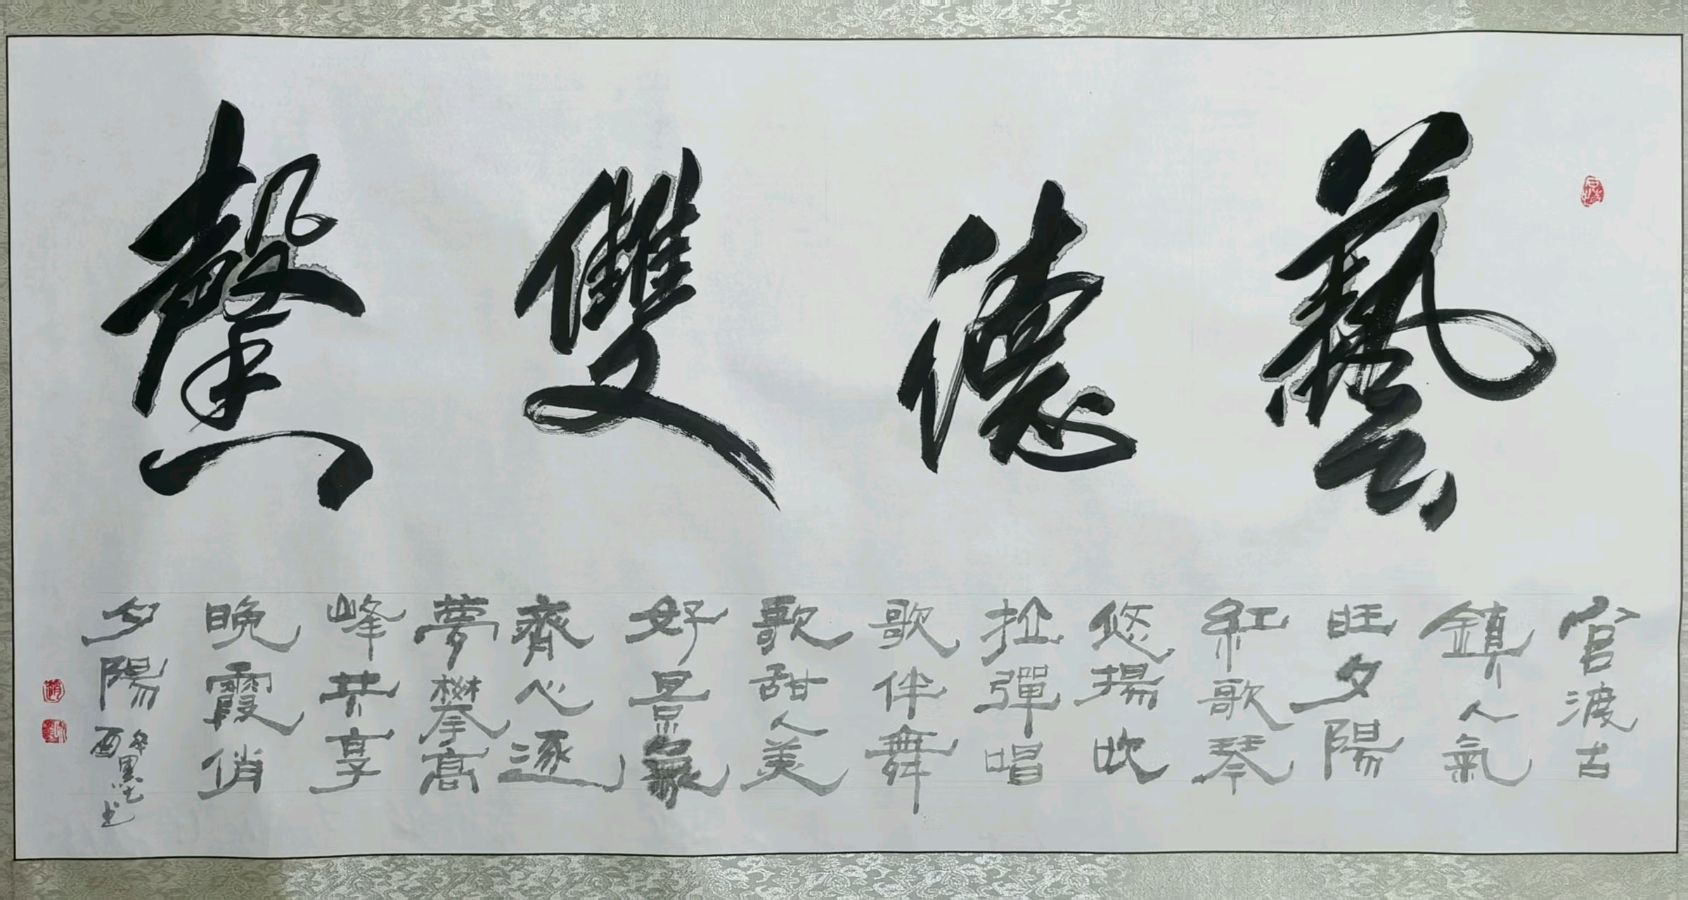 藝德雙馨
官渡古
鎮人氣
旺夕陽
紅歌琴
悠揚吹
拉彈唱
歌伴舞
歌甜人美
好景象
齊心逐
夢攀高
峰共享
晚霞俏
夕陽